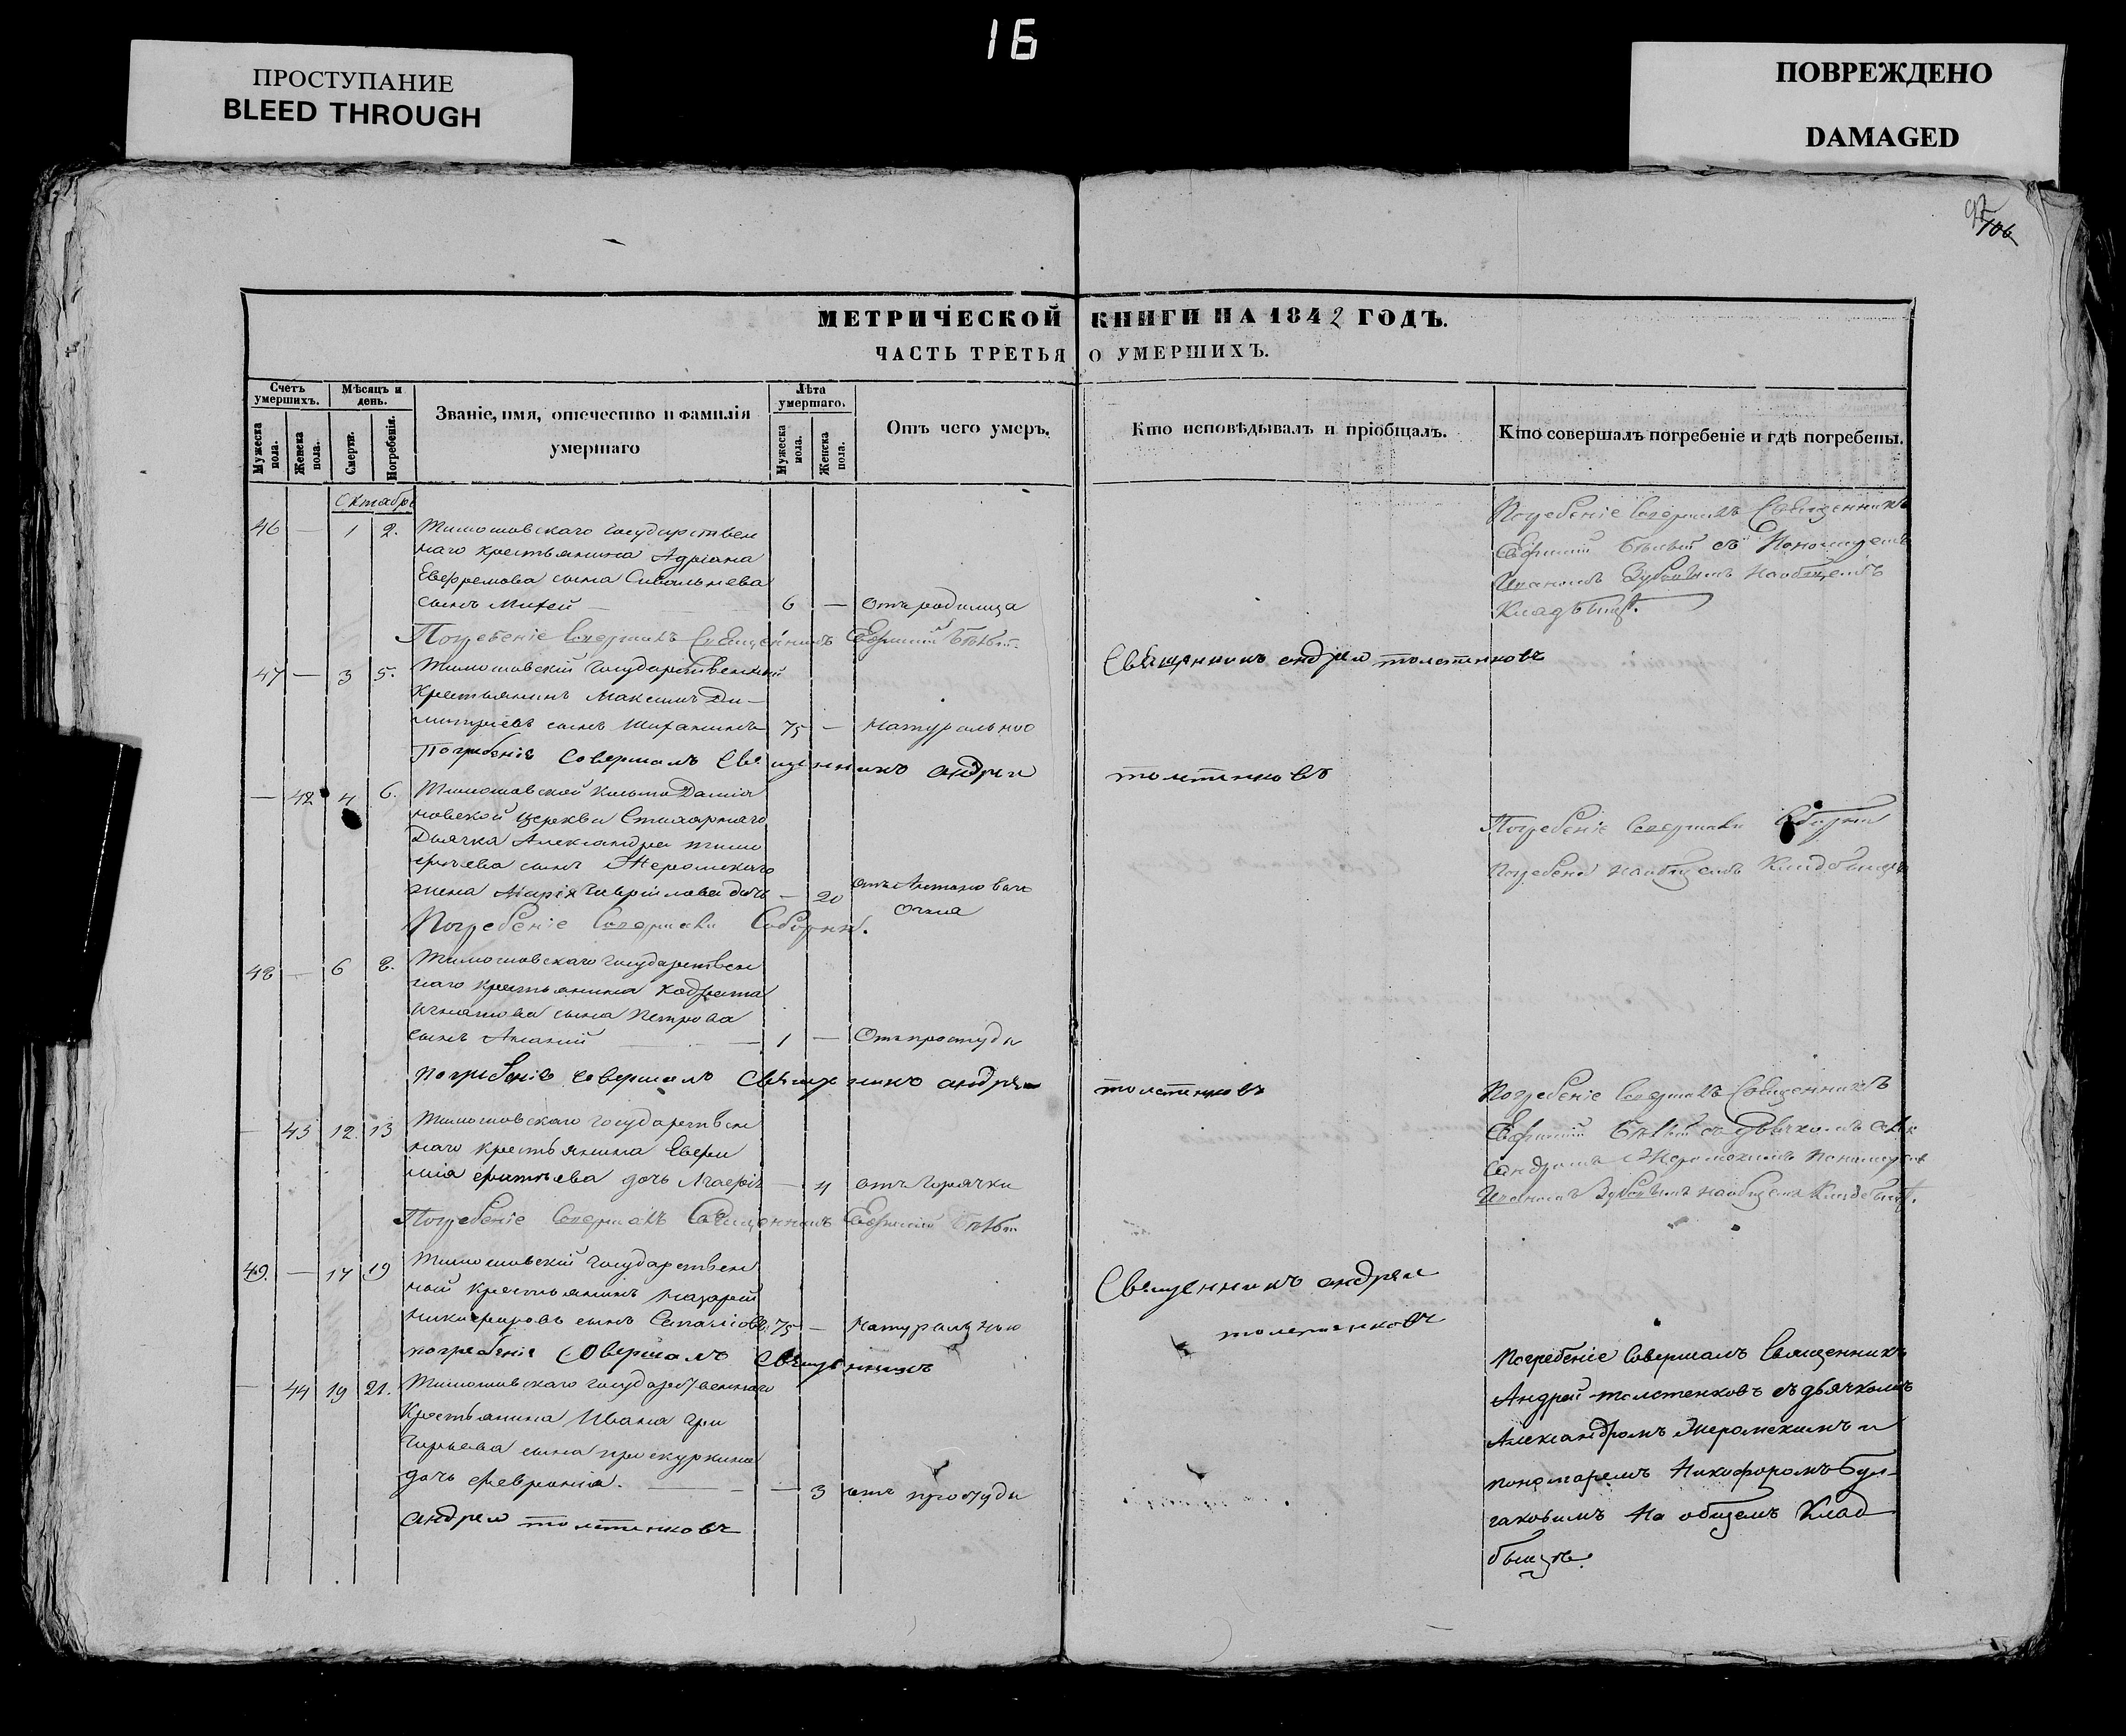 16
ПРОСТУПАНИЕ
BLEED THROUGH
ПОВРЕЖДЕНО
DAMAGED
106
МЕТРИЧЕСКОЙ КНИГИ НА 1842 ГОДЪ.
ЧАСТЬ ТРЕТЬЯ О УМЕРШИХЪ.
Счетъ умершихъ.
Мужеска пола.
Женска пола.
Мѣсяцъ и день.
Смерти.
Погребенія.
Званіе, имя, отечество и фамилія
умершаго
Лѣта умершаго.
Мужеска пола.
Женска пола.
Отъ чего умеръ.
Кто исповѣдывалъ и пріобщалъ.
Кто совершалъ погребеніе и гдѣ погребены.
Октябрь
46 — 1 2. Тимошовскаго государствен
наго крестьянина Адріана
Евфремова сына
сынъ 6 — Отъ родимца
Погребеніе совершалъ Священникъ
Евфимій Бѣлый съ Пономаремъ
Иваномъ Зубовымъ на общемъ
Кладбищѣ.
Погребеніе совершалъ Священникъ Евфимій Бѣлый
47 — 3 5. Тимошовскій государственный
крестьянинъ Максимъ Ди-
митріевъ сынъ 75 — Натурально
Священникъ андреи толстенковъ
Погребеніе совершалъ Священникъ андреи толстенковъ
— 42 4 6. Тимошовской Косьмо Даміа
новской церкви Стихарнаго
Дьячка Александра
сына Жеромскаго
жена Марія Гавріилова дочь — 20
Погребеніе совершали Соборнѣ
Погребена на общемъ Кладбищѣ
Погребеніе совершали Соборнѣ.
48 — 6 8. Тимошовскаго государствен
наго крестьянина Кодрата
Игнатова сына Петрова
сынъ Ананій — 1 — Отъ простуды
Погребеніе совершалъ Священникъ андреи толстенковъ
— 43 12. 13 Тимошовскаго государствен
наго крестьянина
дочь — 4 отъ горячки
Погребеніе совершалъ Священникъ
Евфимій Бѣлый съ дьячкомъ Алек
сандромъ Жеромскимъ Пономаремъ
Иваномъ Зубовымъ на общемъ Кладбищѣ.
Погребеніе совершалъ Священникъ Евфимій Бѣлый
49. — 17 19 Тимошовскій государствен
ной крестьянинъ Назарей
Никифоровъ сынъ 75 — Натурально
Священникъ андреи
толстенковъ
погребеніе совершалъ священникъ
— 44 19 21. Тимошовскаго государственнаго
Крестьянина Ивана Гри
горьева сына проскуркина
дочь Февронія. — 3 отъ простуды
андреи толстенковъ
Погребеніе совершалъ Священникъ
Андрей толстенковъ съ дьячкомъ
Александромъ Жеромскимъ и
пономаремъ Никифоромъ Бул-
гаковымъ На общемъ Клад
бищѣ.